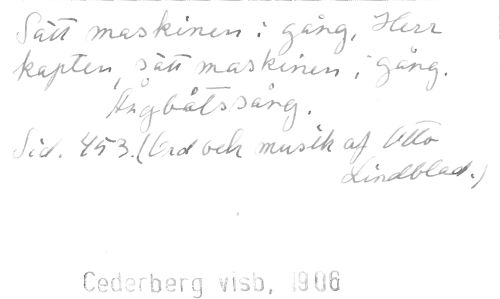 Sätt maskinen i gång, Herr
kapten, sätt maskinen i gång.
Ångbåtssång.
Sid. 453. (Ord och musik af Otto
Lindblad.)
Cederberg visb, 1906